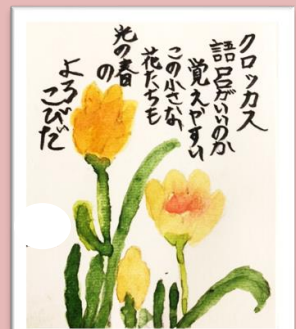 クロッカス
語呂がいいのか
覚えやすい
この小さな
花たちも
光の春
の
よろ
こびだ